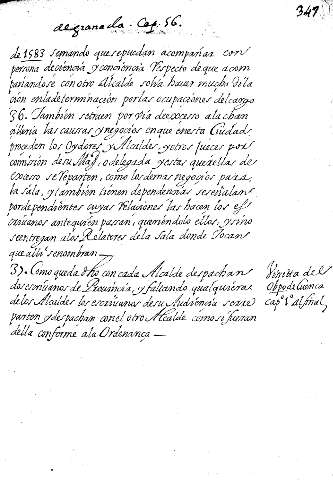 de granada. Cap. 56.
347
de 1583 semando que se puedan acompañar con
persona de ciencia, y conciencia Respecto de que acom
pañandose con otro Alcalde solia hauer mucha dila
cion en la determinacion por las ocupaciones del cargo
36. Tambien se traen por via de exceso a la chan
zilleria las causas y negocios en que en esta Ciudad
proceden los Oydores, y Alcaldes, y otros jueces por
comission de su Mag.d, o delegada y estas querellas de
exceso se reparten, como los demas negocios para
la sala, y tambien tienen dependencia se señalan
por dependientes cuyas relaciones las hacen los es
criuanos ante quien passan, queriendo ellos, y sino
se entregan a los Relatores de la sala donde tocan
que alli se nombran
37. Como queda dho con cada Alcalde despachan
dos escriuanos de Prouincia, y faltando qualquiera
de los Alcaldes los escriuanos de su Audiencia se re
parten y despachan con el otro Alcalde como si fueran
della conforme a la Ordenança
Visita de el
Obpo de Cuenca
cap. 1.º al final